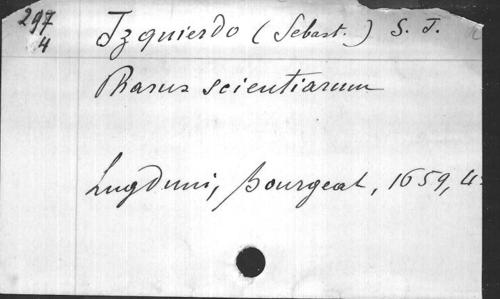 297
4
Izquierdo (Sebast.) S. J.
Pharus scientiarum
Lugduni, Bourgeat, 1659, 4º